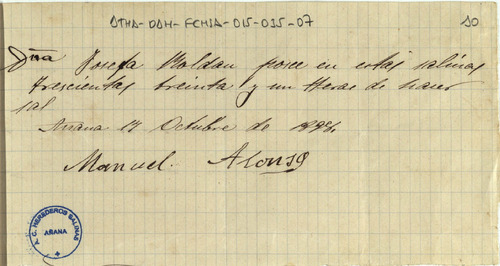 ATHA-DAH-FCMIA-015-015-07
10
Dña Josefa Roldan posee en estas salinas
trescientas treinta y un Heras de hacer
sal
Añana 17 Octubre de
Manuel Alonso
A. C. HEREDEROS SALINAS
AÑANA